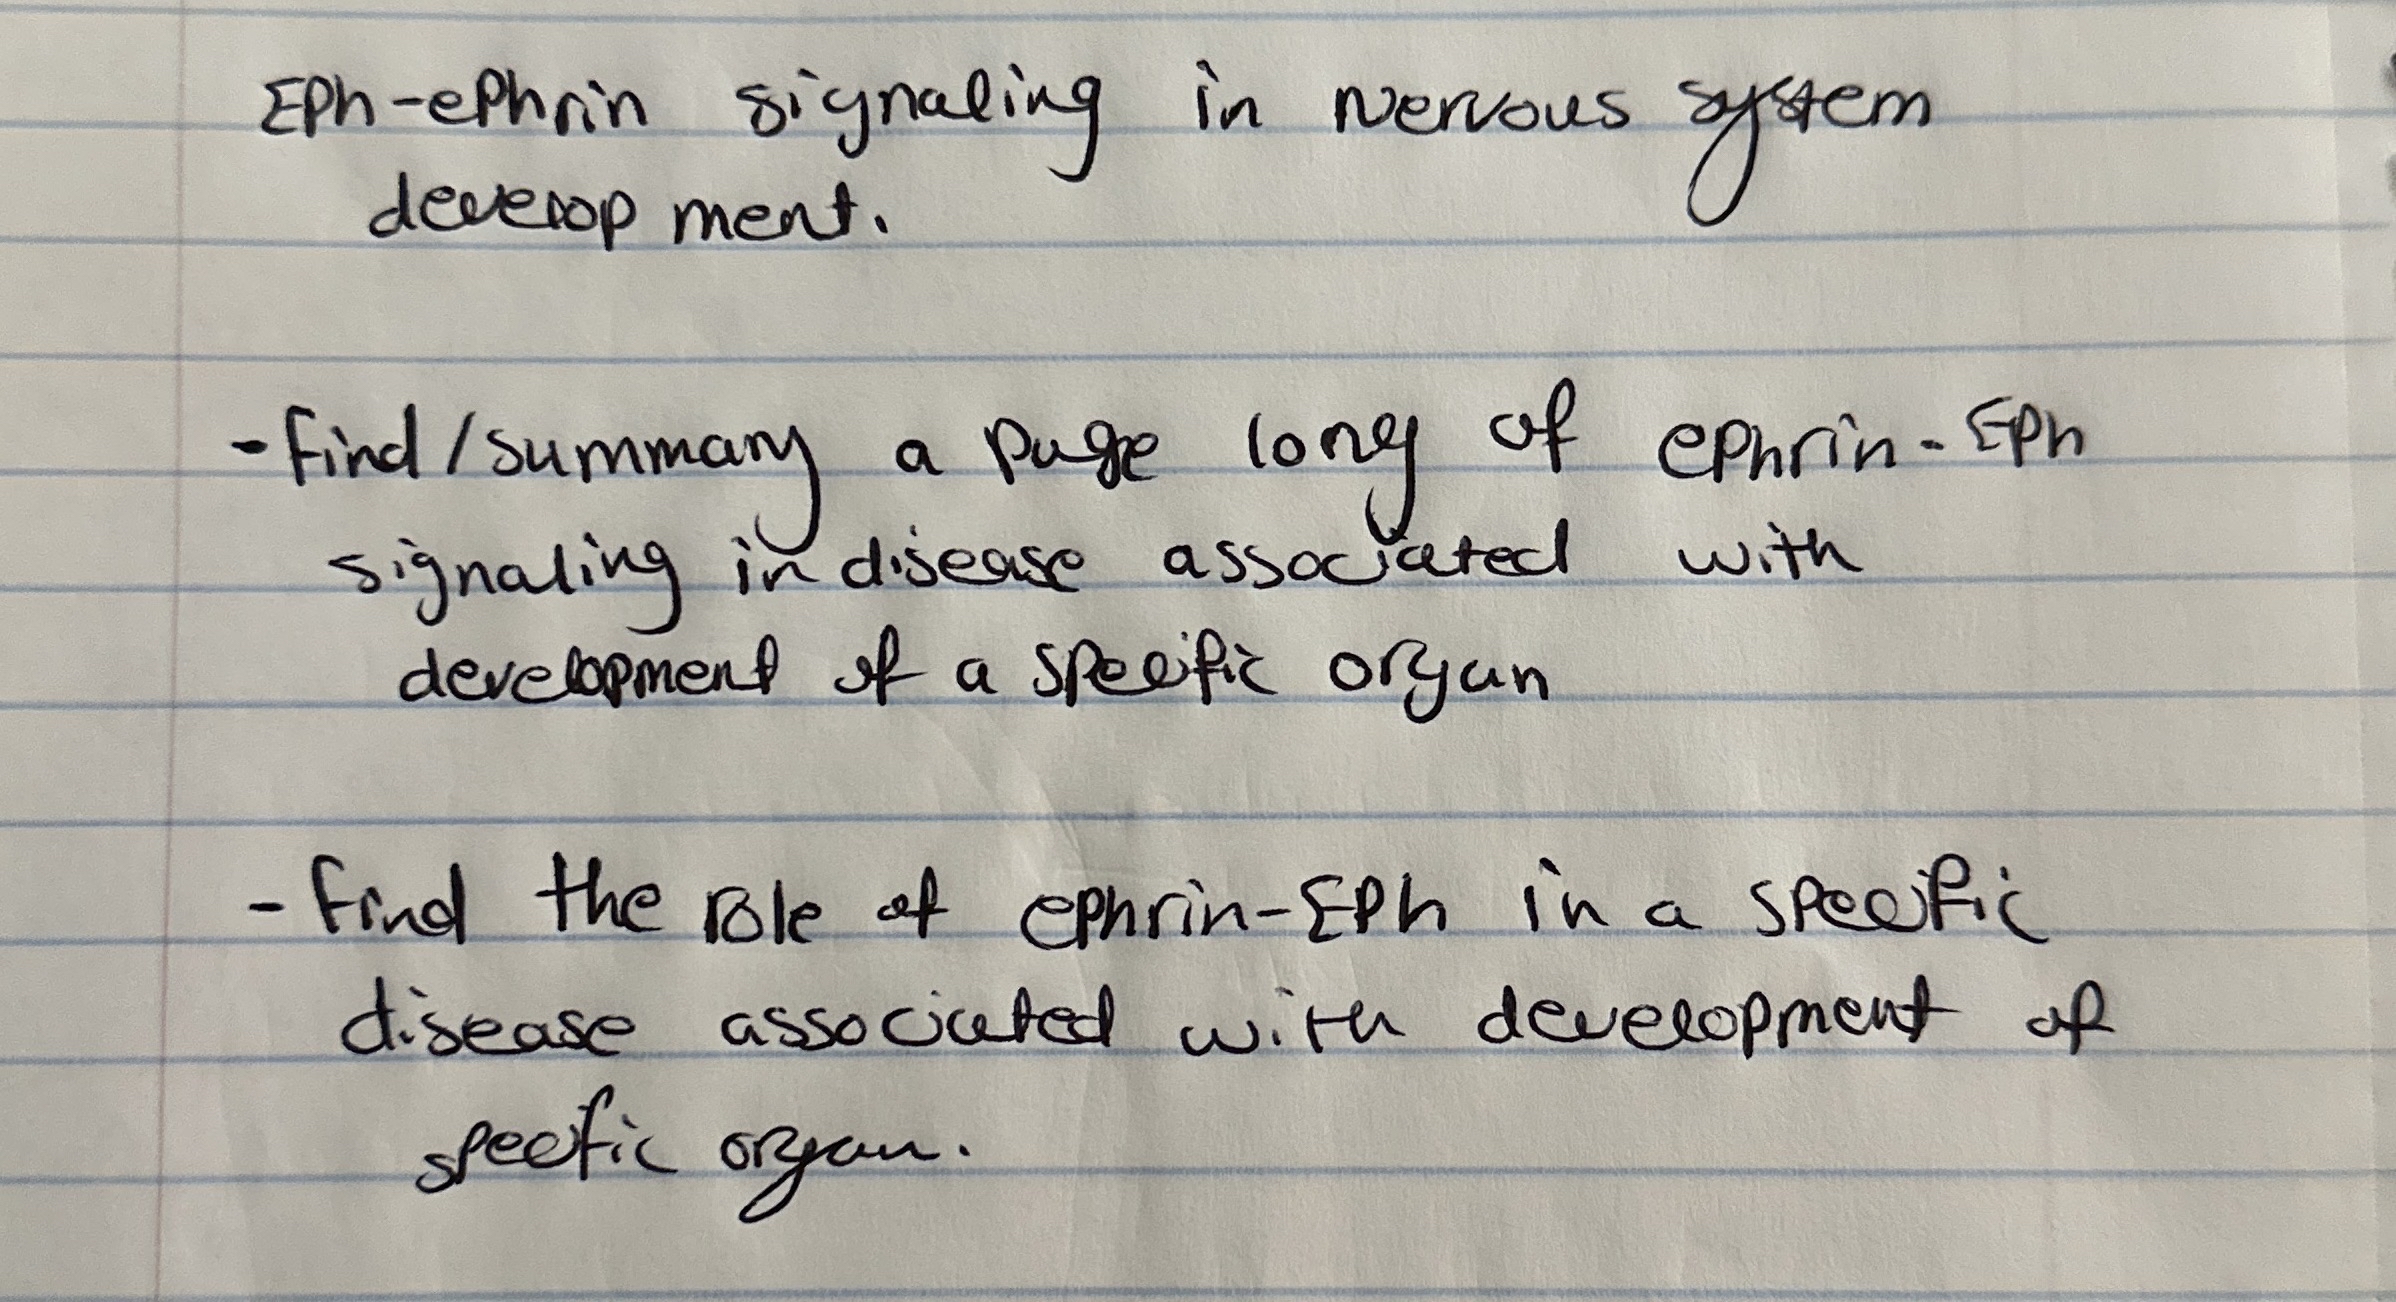 Eph-ephrin signaling in nervous system
development.
- Find/summary a page long of ephrin-Eph
signaling in disease associated with
development of a specific organ
- Find the role of ephrin-Eph in a specific
disease associated with development of
specific organ.